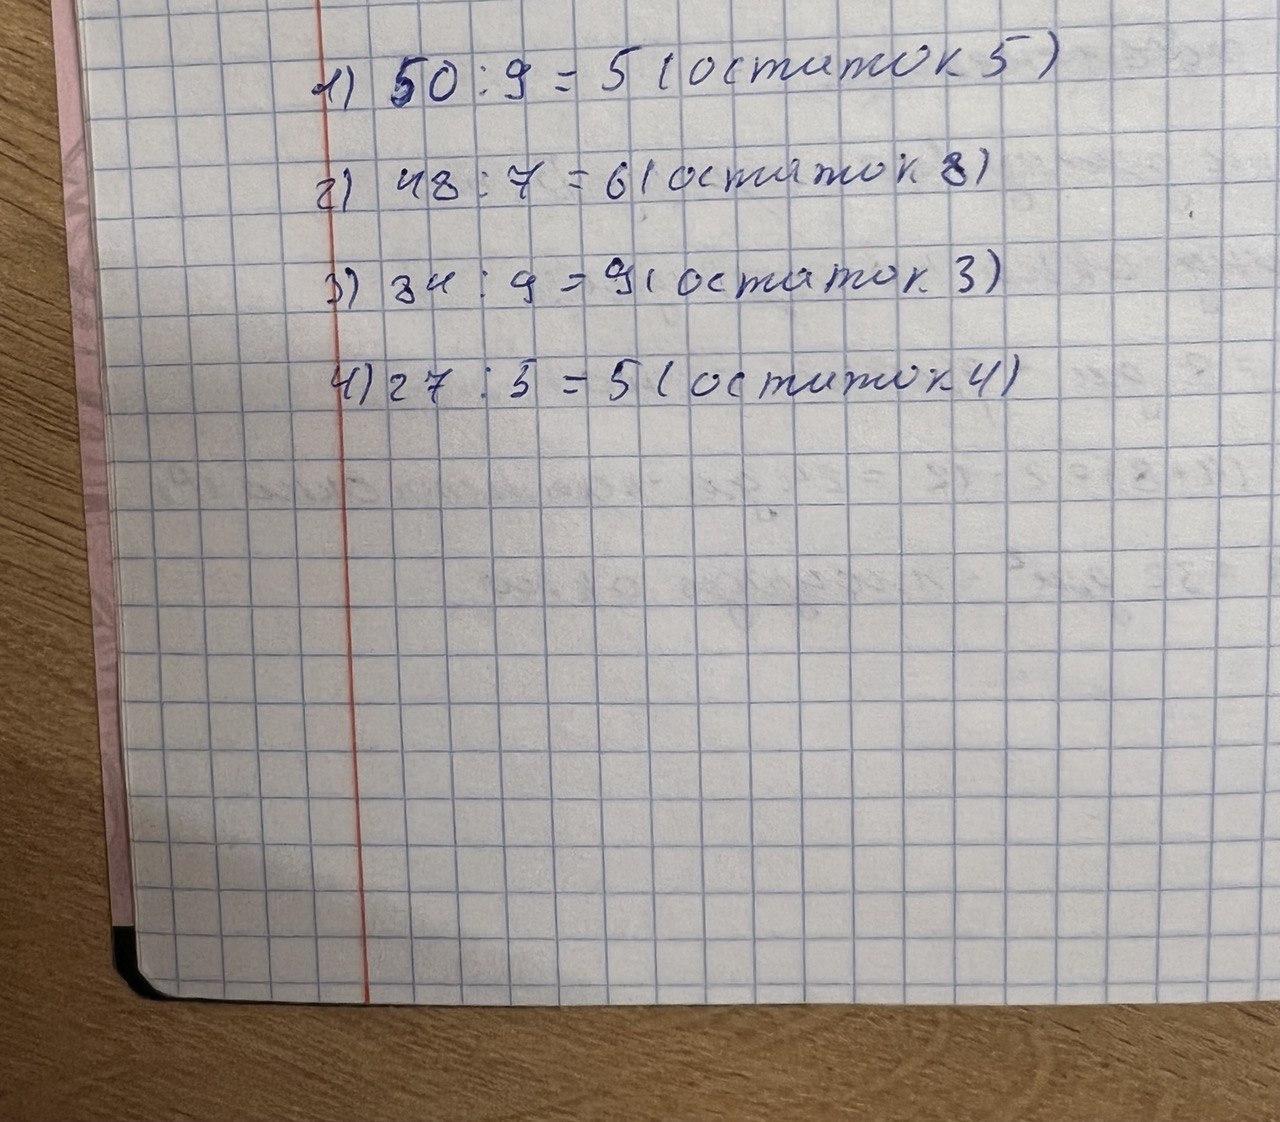 1) 50 : 9 = 5 (остаток 5)
2) 48 : 7 = 6 (остаток 8)
3) 84 : 9 = 9 (остаток 3)
4) 27 : 5 = 5 (остаток 4)